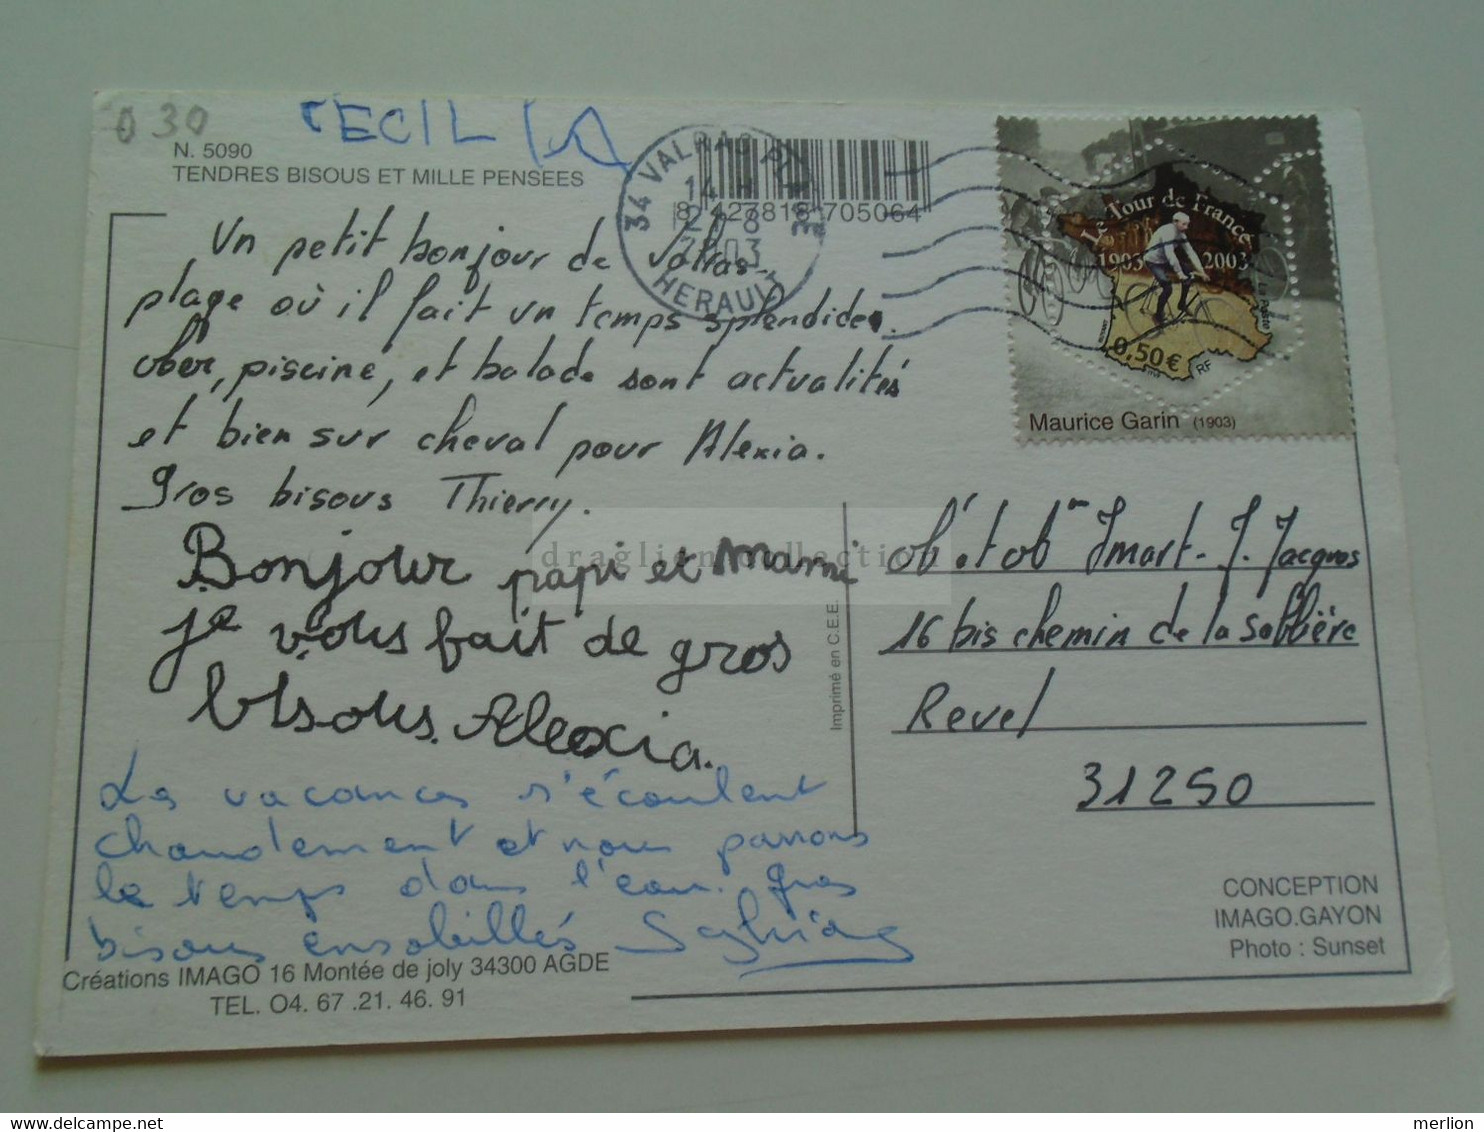 030
CECILIA
N. 5090
TENDRES BISOUS ET MILLE PENSEES
34 VALRAS PLAGE
14 H
2003
HERAULT
8 423818 705064
Le Tour de France
1903 2003
La Poste
0,50€
RF
Maurice Garin (1903)
Un petit bonjour de Valras-
plage où il fait un temps splendide.
, piscine, et balade sont actualités
et bien sur cheval pour Alexia.
Gros bisous Thierry.
Bonjour papi et mami
je vous fait de gros
bisous. Alexia.
Les vacances s'écoulent
chaudement et nous passons
le temps dans l'eau. gros
bisous ensoleillés Sylviane
Imprimé en C.E.E.
Imart - J. Jacques
16 bis chemin de la Sabbière
Revel
31250
CONCEPTION
IMAGO.GAYON
Photo : Sunset
Créations IMAGO 16 Montée de joly 34300 AGDE
TEL. O4. 67 .21. 46. 91
draglien collection
www.delcampe.net
merlion